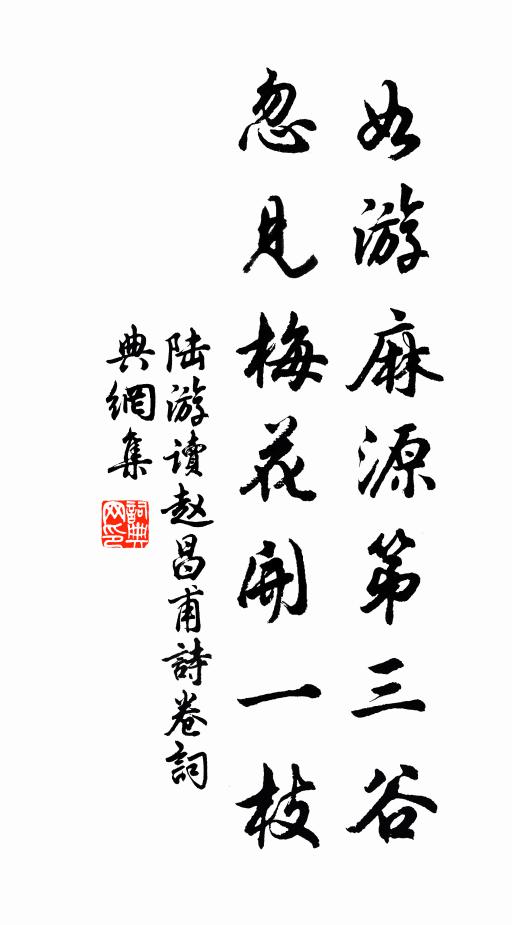 如游麻源第三谷
忽見梅花開一枝
陆游讀赵昌甫詩卷詞
典網集
詞典网印